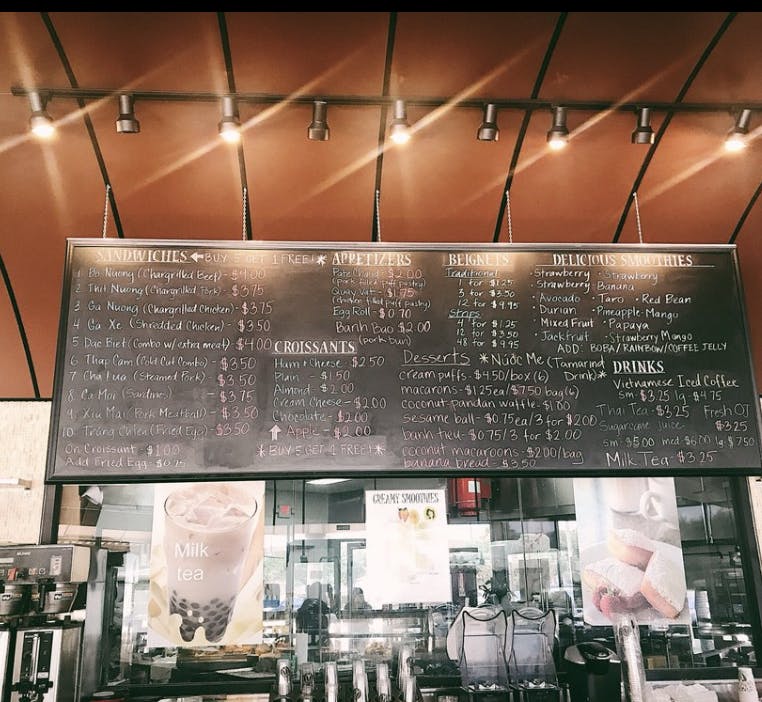 SANDWICHES ← BUY 5 GET 1 FREE! *
1 Bo Nuong (Chargrilled Beef) - $4.00
2. Thit Nuong (Chargrilled Pork) - $3.75
3. Ga Nuong (Chargrilled Chicken) - $3.75
4 Ga Xe (Shredded Chicken) - $3.50
5 Dac Biet (Combo w/ extra meat) $4.00
6 Thap Cam (Cold Cut Combo) - $3.50
7 Cha Lua (Steamed Pork) - $3.50
8 Ca Moi (Sardines) - $3.75
9. Xiu Mai (Pork Meatball) - $3.50
10. Trung Chien (Fried Egg) - $3.50
On Croissant - $1.00
Add Fried Egg - $0.75
APPETIZERS
Pate Chaud - $2.00
(pork filled puff pastry)
$1.75
(chicken filled puff pastry)
Egg Roll - $0.70
Banh Bao $2.00
(pork bun)
CROISSANTS
Ham & Cheese - $2.50
Plain - $1.50
Almond - $2.00
Cream Cheese - $2.00
Chocolate - $2.00
↑ Apple - $2.00
* BUY 5 GET 1 FREE! *
BEIGNETS
Traditional
1 for $1.25
3 for $3.50
12 for $9.95
4 for $1.25
12 for $3.50
48 for $9.95
Desserts *Nước Me (Tamarind Drink)*
cream puffs - $4.50/box (6)
macarons - $1.25ea/$7.50 bag (6)
coconut pandan waffle - $1.00
sesame ball - $0.75ea/3 for $2.00
banh tieu - $0.75/3 for $2.00
coconut macaroons - $2.00/bag
banana bread - $3.50
DELICIOUS SMOOTHIES
· Strawberry · Strawberry
· Strawberry Banana
· Avocado · Taro · Red Bean
· Durian · Pineapple-Mango
· Mixed Fruit · Papaya
· Jackfruit · Strawberry Mango
ADD: BOBA/RAINBOW/COFFEE JELLY
DRINKS
Vietnamese Iced Coffee
sm - $3.25 lg - $4.75
Thai Tea - $3.25 Fresh OJ
Sugarcane Juice $3.25
sm - $5.00 med - $6.00 lg - $7.50
Milk Tea - $3.25
Milk
tea
CREAMY SMOOTHIES